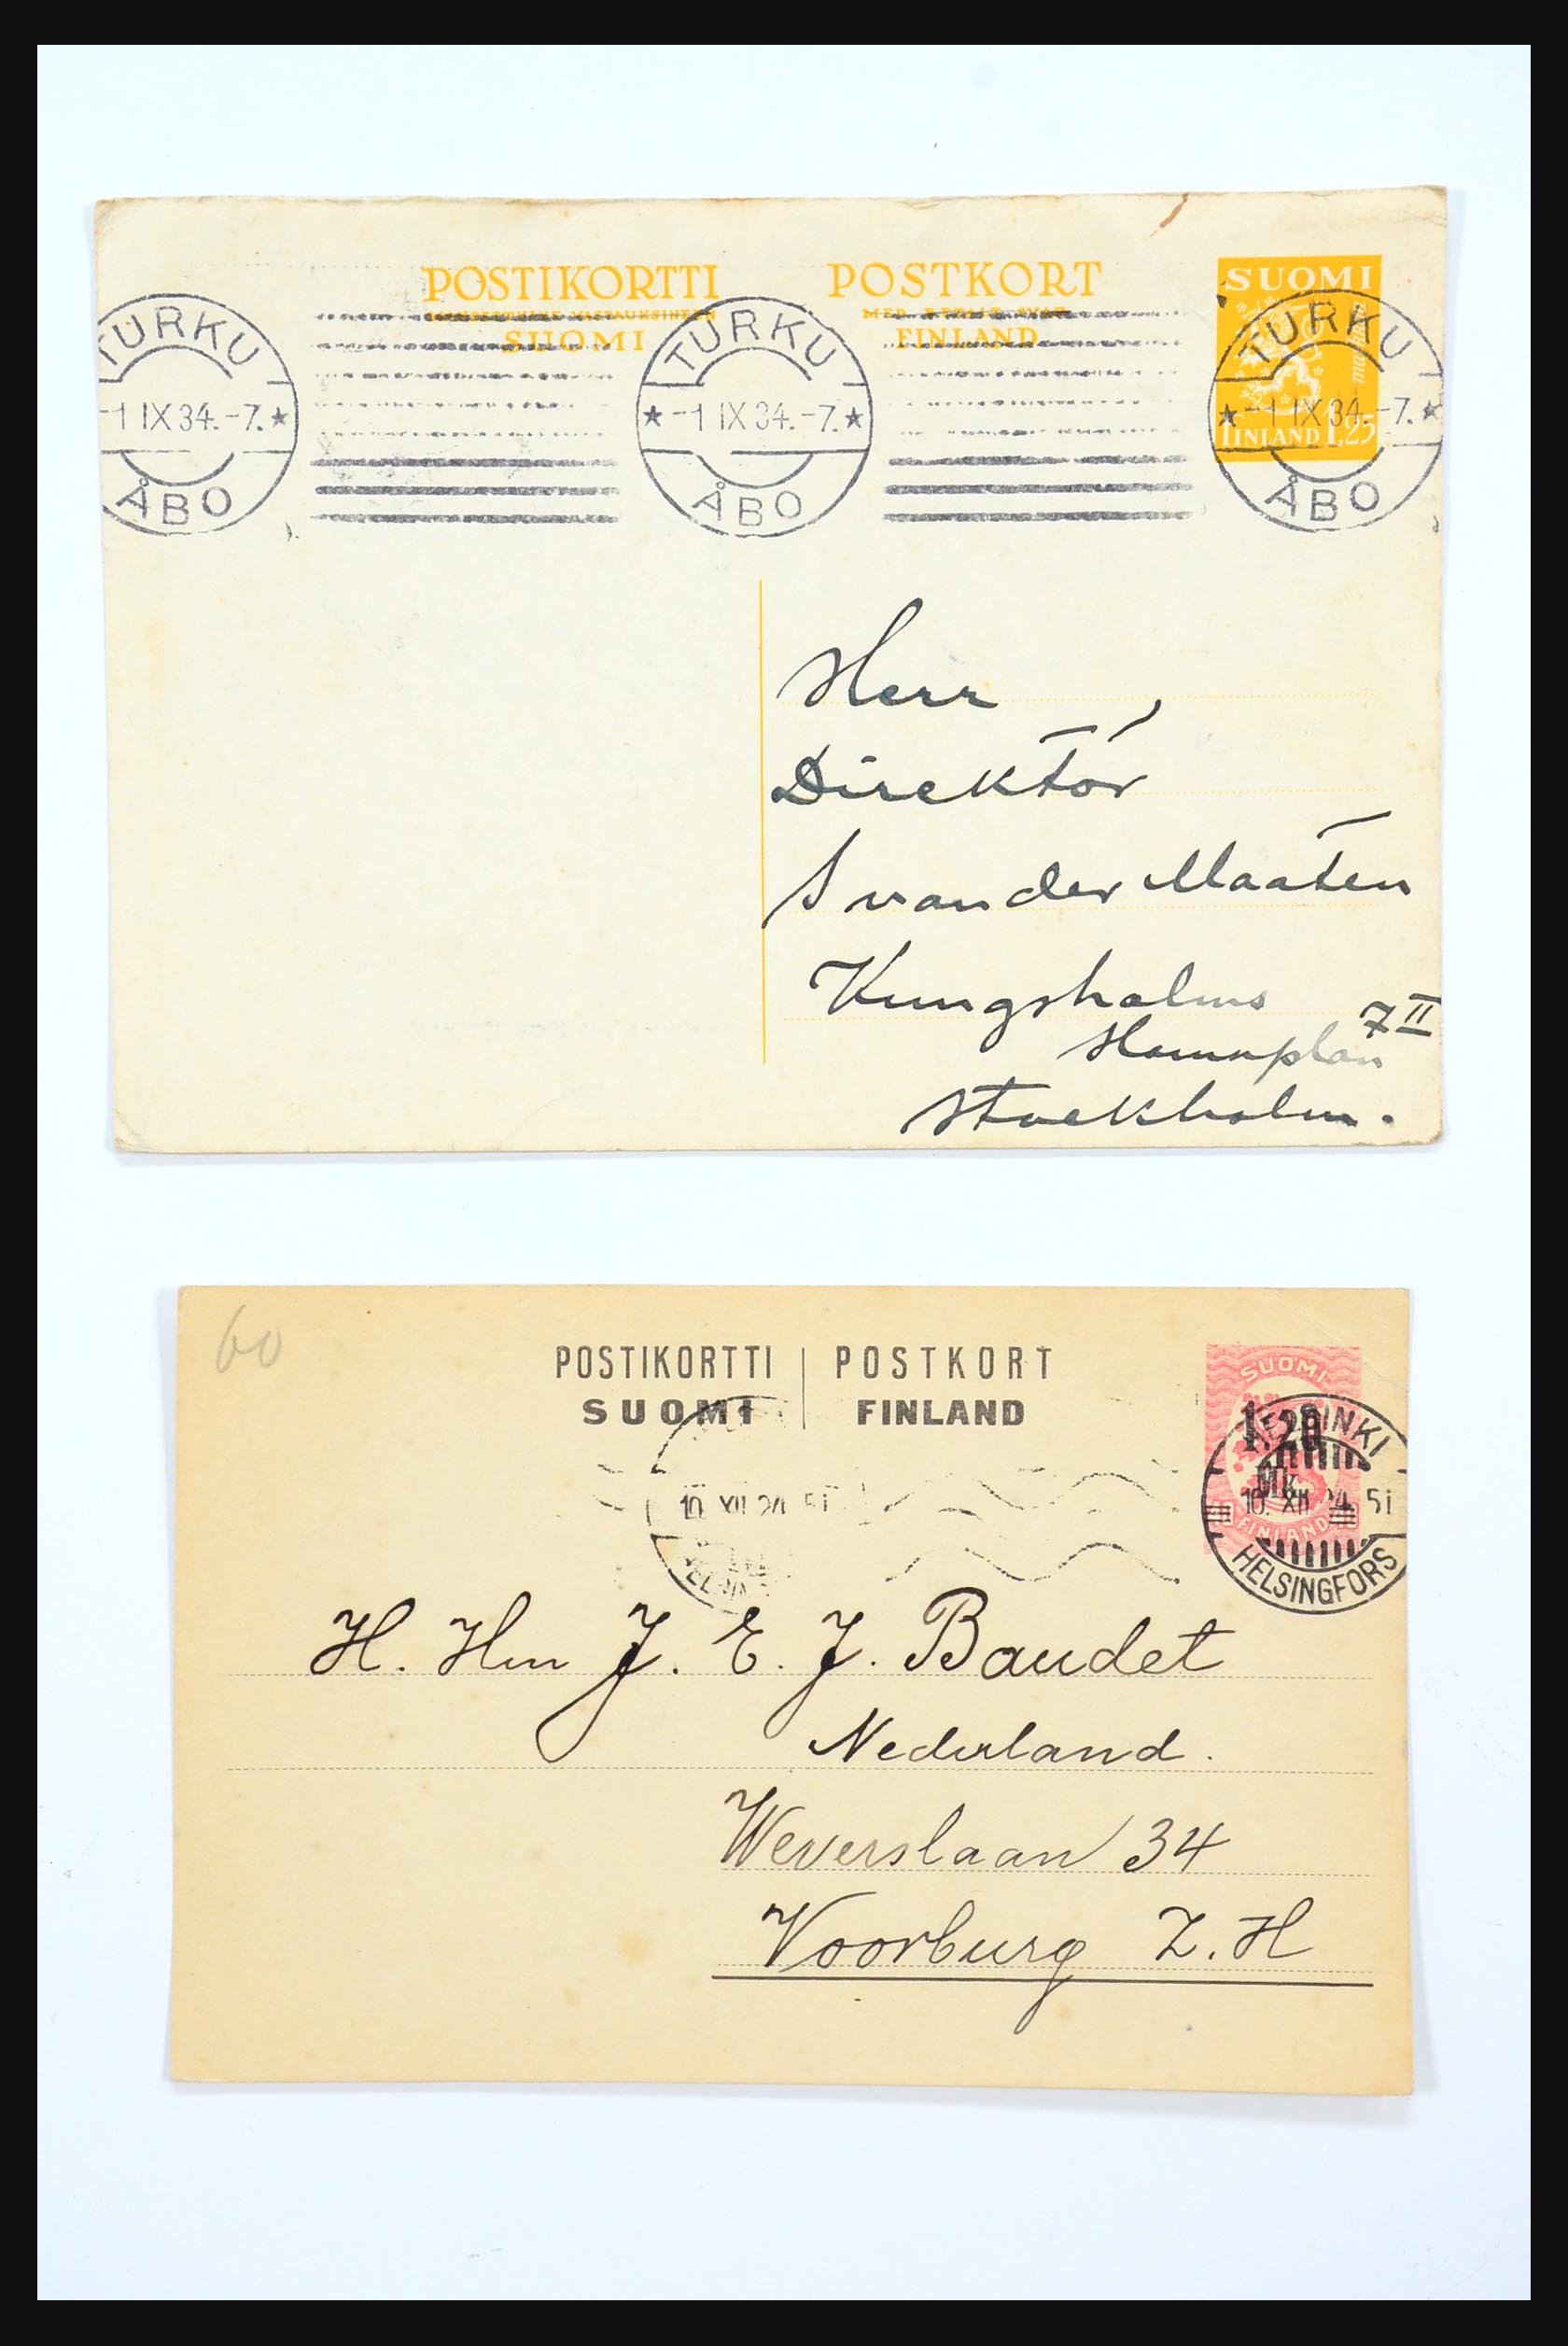 POSTIKORTTI POSTKORT
SUOMI FINLAND
SUOMI
FINLAND 1,25
TURKU
-1 IX 34.-7.★
ÅBO
TURKU
★-1 IX 34.-7.★
ÅBO
TURKU
★-1 IX 34.-7.★
ÅBO
Herr
Direktör
S van der Maaten
Kungsholms
Hamnplan 7 II
Stockholm.
60
POSTIKORTTI POSTKORT
SUOMI FINLAND
SUOMI
1:20
Mk
FINLAND
HELSINKI
10. XII 24. 5i
HELSINGFORS
10. XII 24 5i
H. Hm J. E. J. Baudet
Nederland.
Weverslaan 34
Voorburg Z.H